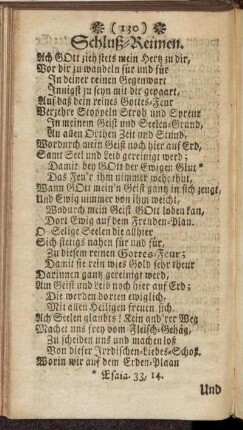 (130)
Schluß-Reimen.
Ach GOtt zieh stets mein Hertz zu dir,
Vor dir zu wandeln für und für
In deiner reinen Gegenwart
Innigst zu seyn mit dir gepaart,
Auf daß dein reines Gottes-Feur
Verzehre Stoppeln Stroh und Spreur
In meinem Geist und Seelen-Grund,
An allen Orthen Zeit und Stund,
Wordurch mein Geist noch hier auf Erd,
Samt Seel und Leid gereiniget werd;
Damit bey GOtt der Ewigen Glut *
Das Feu'r ihm nimmer wehe thut,
Wann GOtt mein'n Geist gantz in sich zeugt,
Und Ewig nimmer von ihm weicht,
Wodurch mein Geist GOtt loben kan,
Dort Ewig auf dem Freuden-Plan.
O Selige Seelen die allhier
Sich stetigs nahen für und für,
Zu diesem reinen Gottes-Feur;
Damit sie rein wies Gold sehr theur
Darinnen gantz gereiniget werd,
Am Geist und Leid noch hier auf Erd;
Die werden dorten ewiglich,
Mit allen Heiligen freuen sich.
Ach Seelen glaubts! Kein and'rer Weg
Machet uns frey vom Fleisch-Gehäg,
Zu scheiden uns und machen loß
Von dieser Irrdischen-Liebes-Schoß.
Worin wir auf dem Erden-Plaan
* Esaia. 33, 14.
Und